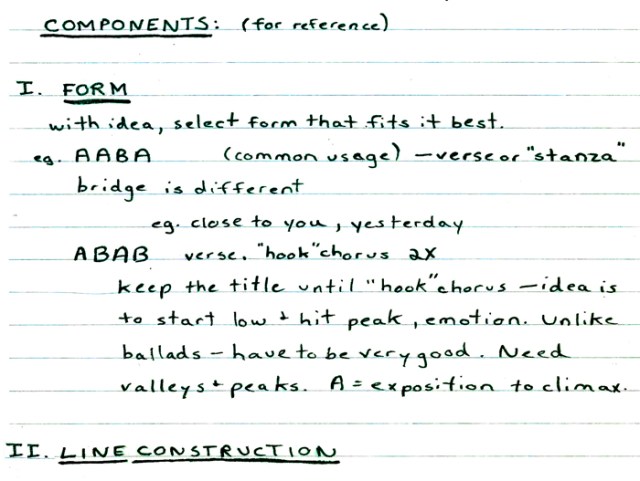 COMPONENTS: (for reference)
I. FORM
with idea, select form that fits it best.
eg. AABA (common usage) – verse or "stanza"
bridge is different
eg. close to you, yesterday
ABAB verse. "hook" chorus 2X
keep the title until "hook" chorus – idea is
to start low + hit peak, emotion. Unlike
ballads – have to be very good. Need
valleys + peaks. A = exposition to climax.
II. LINE CONSTRUCTION